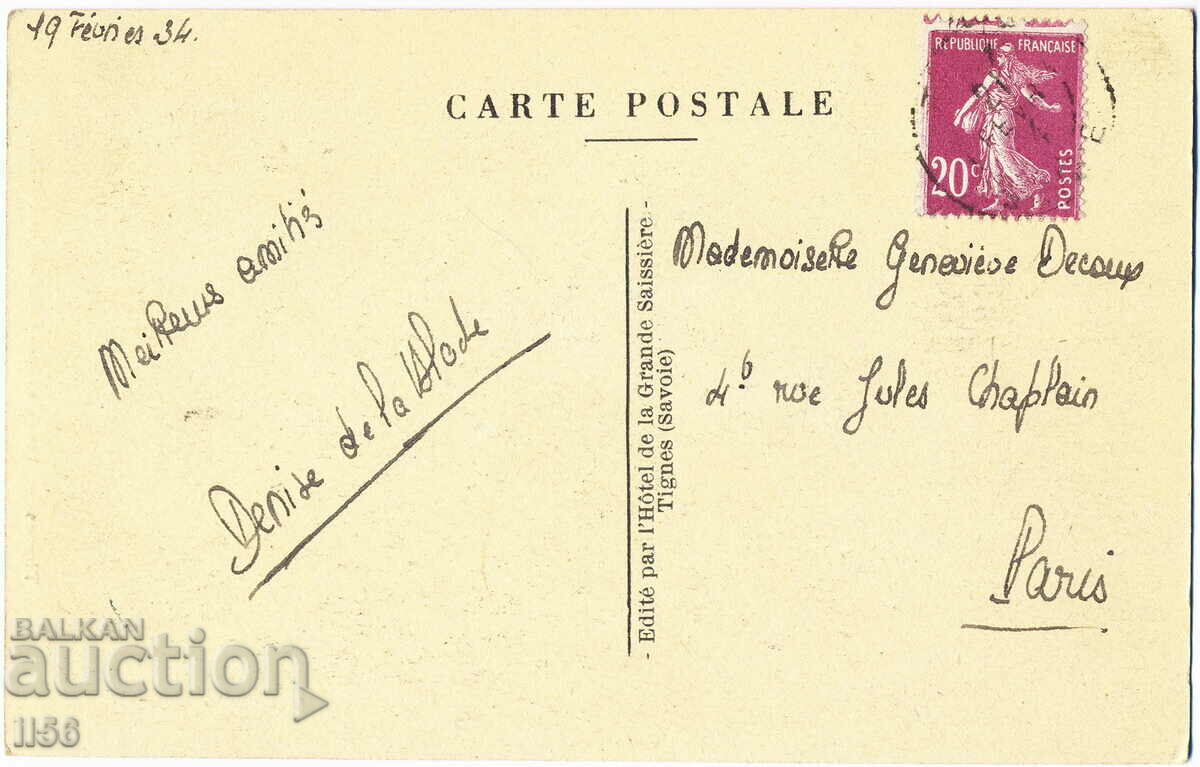 19 Février 34.
CARTE POSTALE
REPUBLIQUE FRANÇAISE
20c
POSTES
Meilleures amitiés
Denise de la
- Edité par l'Hôtel de la Grande Saissière -
Tignes (Savoie)
Mademoiselle Geneviève Decoux
4b rue Jules Chaplain
Paris
BALKAN
auction
1156